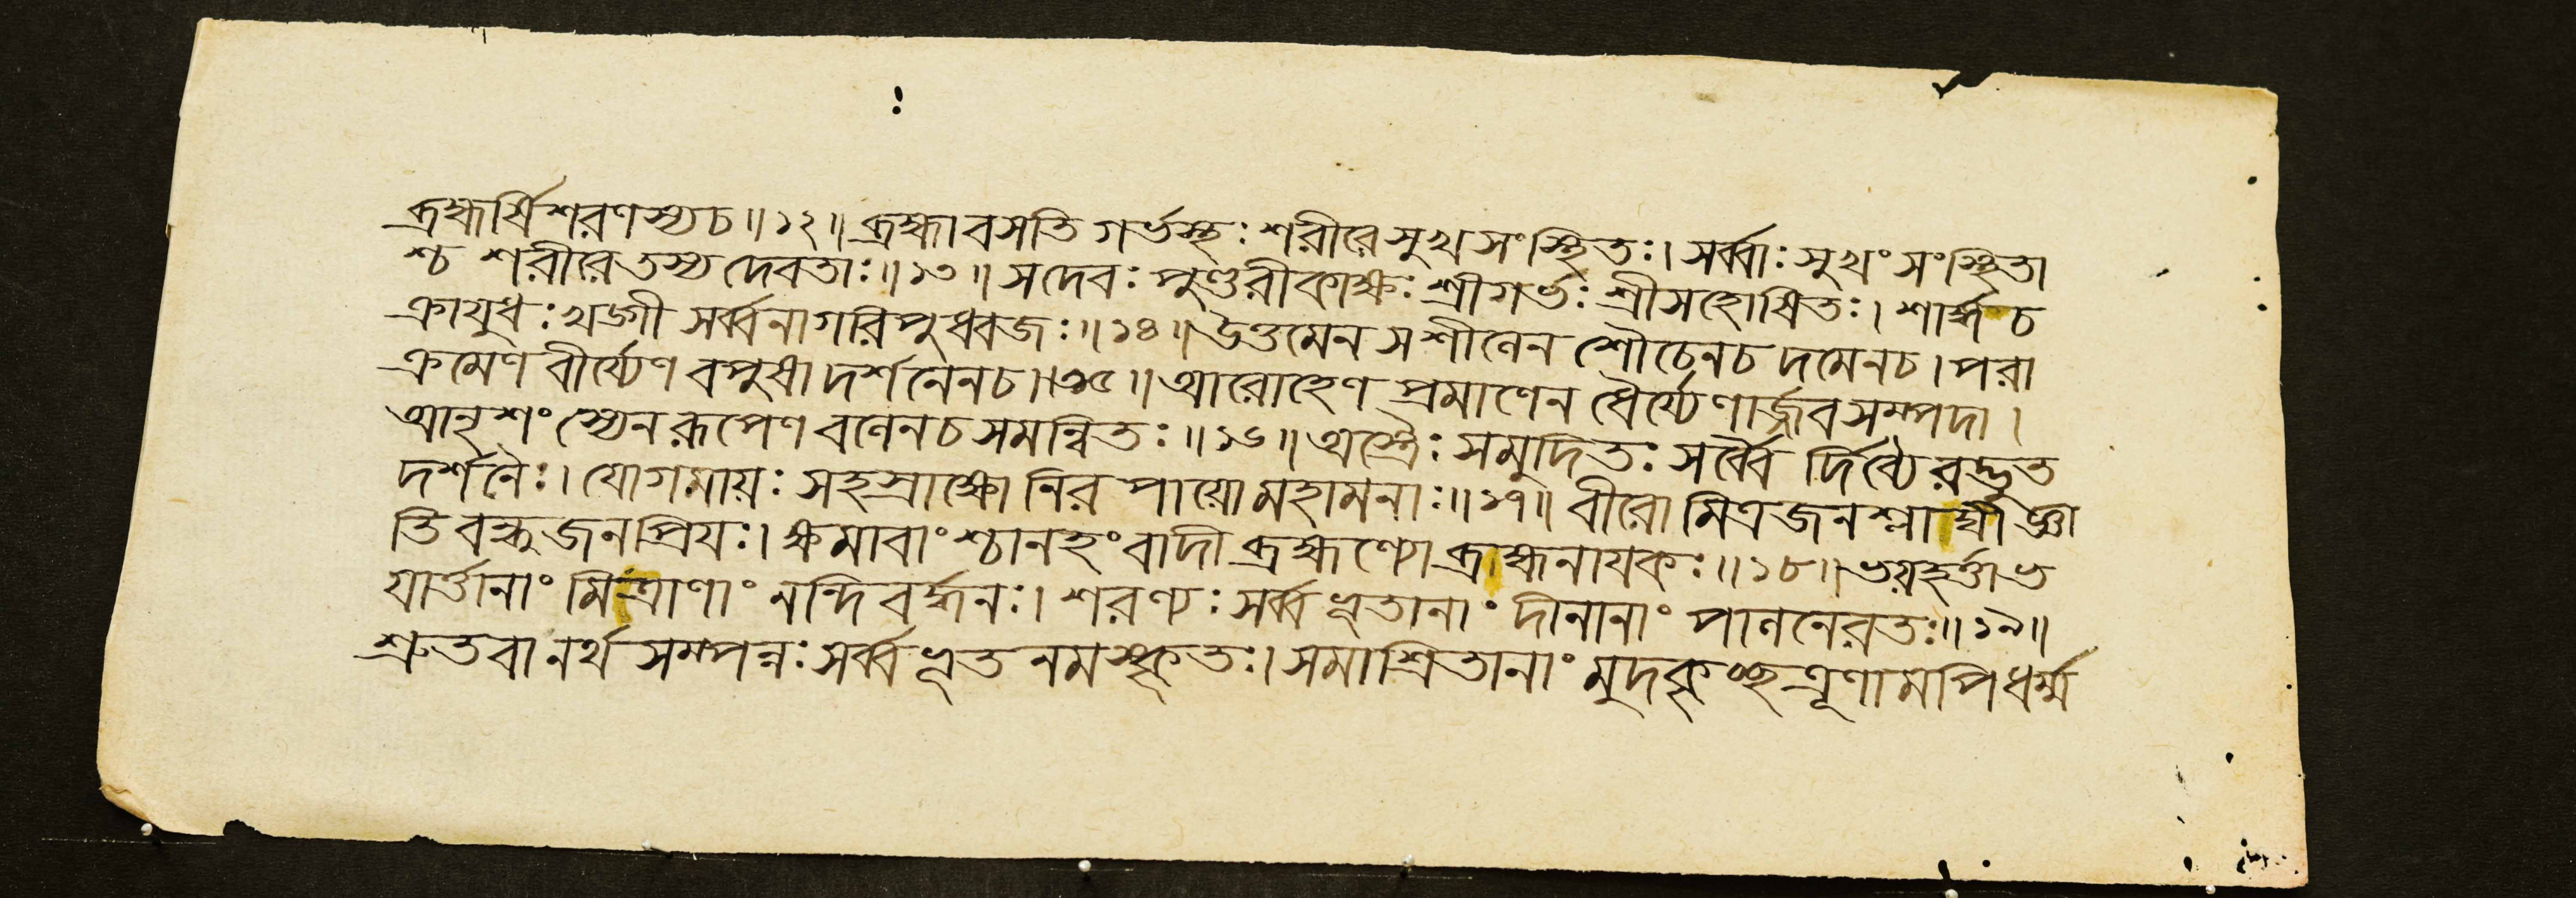 ব্রহ্মর্ষিশরণস্যচ॥১২॥ব্রহ্মাবসতি গর্ভস্থঃ শরীরে সুখসংস্থিতঃ। সর্ব্বাঃ সুখং সংস্থিতা
শ্চ শরীরেতস্য দেবতাঃ॥১৩॥ সদেবঃ পুণ্ডরীকাক্ষঃ শ্রীগর্ভঃ শ্রীসহোষিতঃ। শার্ঙ্গচ
ক্রাযুধঃ খড্গী সর্ব্বনাগরিপুধ্বজঃ॥১৪॥উত্তমেন সশীলেন শৌচেনচ দমেনচ। পরা
ক্রমেণ বীর্য্যেণ বপুষা দর্শনেনচ॥১৫॥ আরোহেণ প্রমাণেন ধৈর্য্যেণার্জ্জবসম্পদা।
আনৃশংস্যেন রূপেণ বলেনচ সমন্বিতঃ॥১৬॥ অস্ত্রৈঃ সমুদিতঃ সর্ব্বৈ র্দিব্যৈরদ্ভুত
দর্শনৈঃ। যোগমায়ঃ সহস্রাক্ষো নির পায়ো মহামনাঃ॥১৭॥ বীরো মিত্রজনশ্লাঘী জ্ঞা
তিবন্ধুজনপ্রিযঃ। ক্ষমাবাংশ্চানহংবাদী ব্রহ্মণ্যো ব্রাহ্মনাযকঃ॥১৮॥ভয়হর্ত্তাভ
যার্ত্তানাং মিত্রাণাং নন্দিবর্দ্ধনঃ। শরণ্যঃ সর্ব্বভূতানাং দীনানাং পালনেরতঃ॥১৯॥
শ্রুতবানর্থ সম্পন্নঃ সর্ব্বভূত নমস্কৃতঃ। সমাশ্রিতানাং মুদকৃচ্ছত্রূণামপিধর্ম্ম